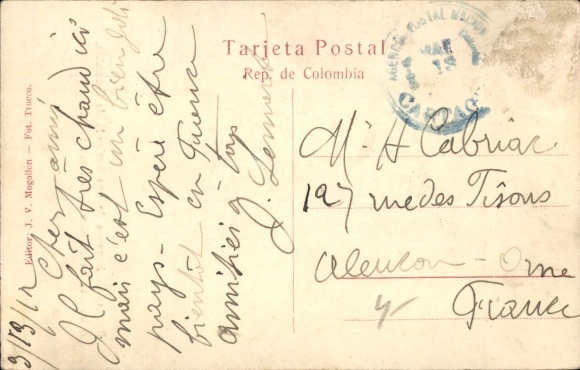 Tarjeta Postal
Rep. de Colombia
AGENCIA POSTAL
MAR
13
CARTAG
Editor, J. V. Mogollon — Fot. Trucco.
3/13/12
Cher ami
Il fait très chaud ici
mais c'est un bien joli
pays - Espère être
bientôt en France
amitiés à tous
Mr A Cabriac
197 rue des Tisons
Alençon - Orne
France